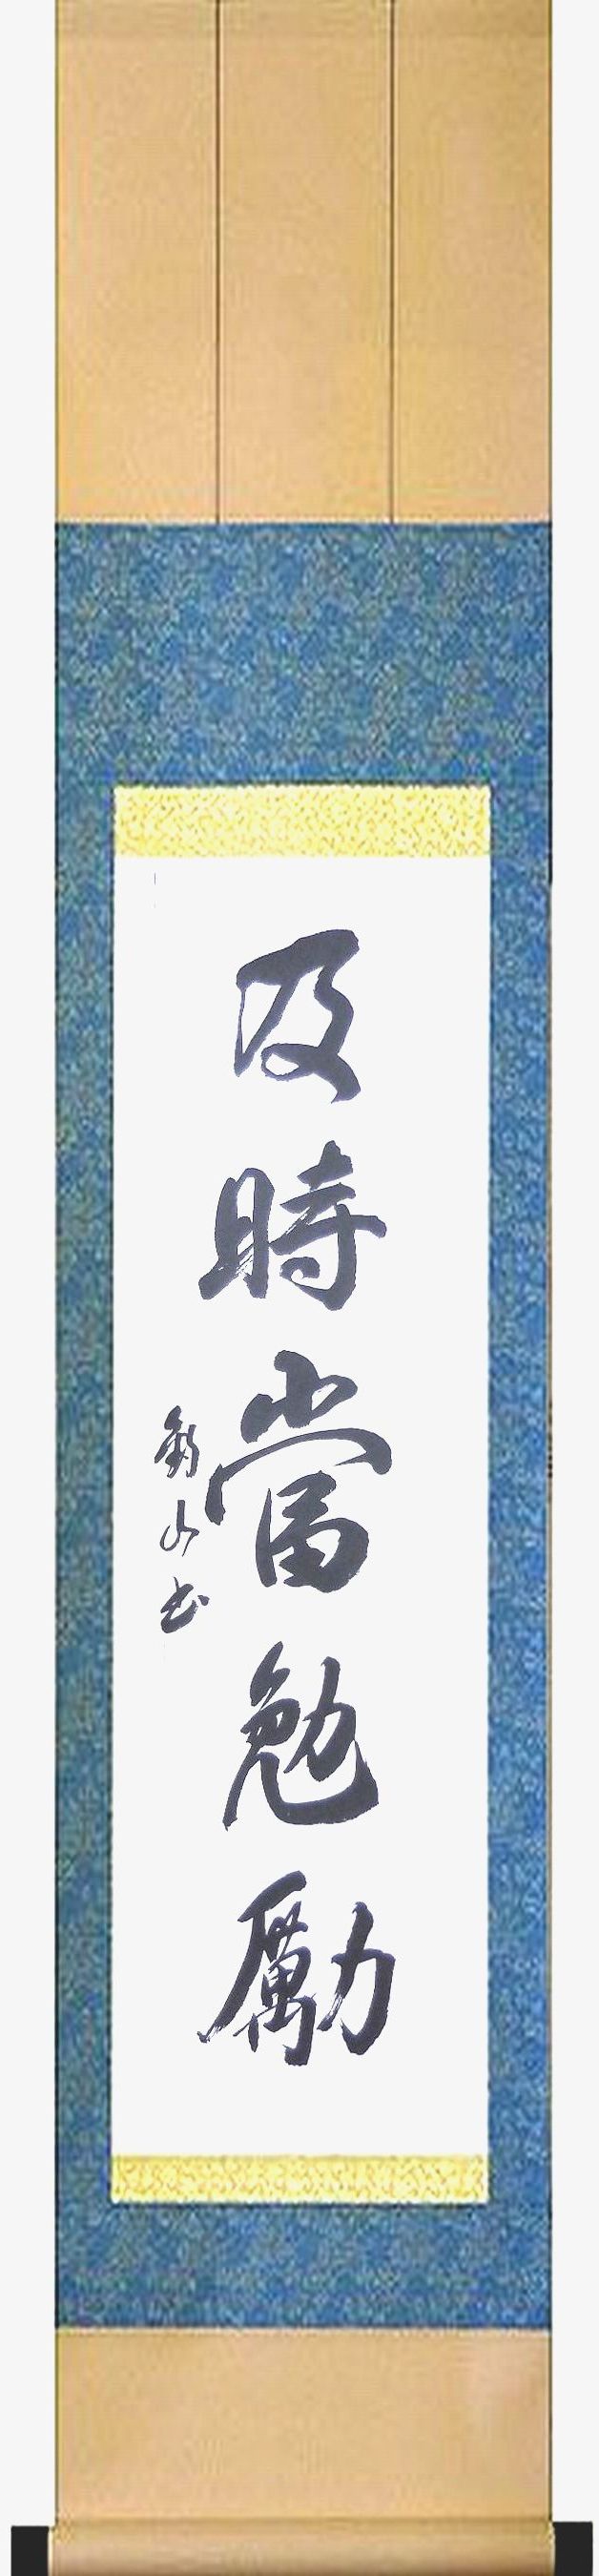 及時當勉勵
山書